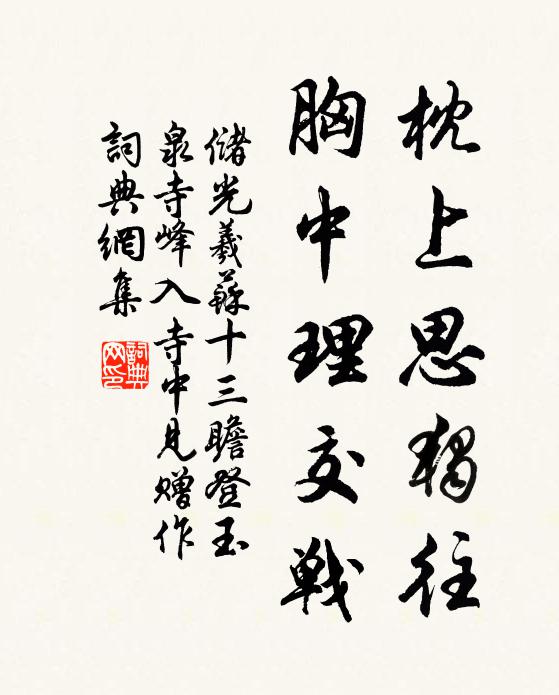 枕上思獨往
胸中理交戰
儲光羲蘇十三瞻登玉
泉寺峰入寺中見贈作
詞典網集
詞典
网印